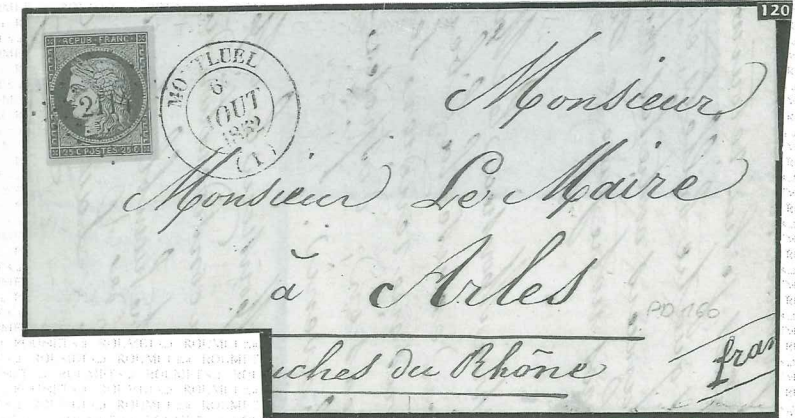 120
REPUB FRANC
25 C POSTES 25 C
MONTLUEL
6
AOUT
1852
(1)
Monsieur
Monsieur Le Maire
à Arles
PD 160
uches du Rhône
fran